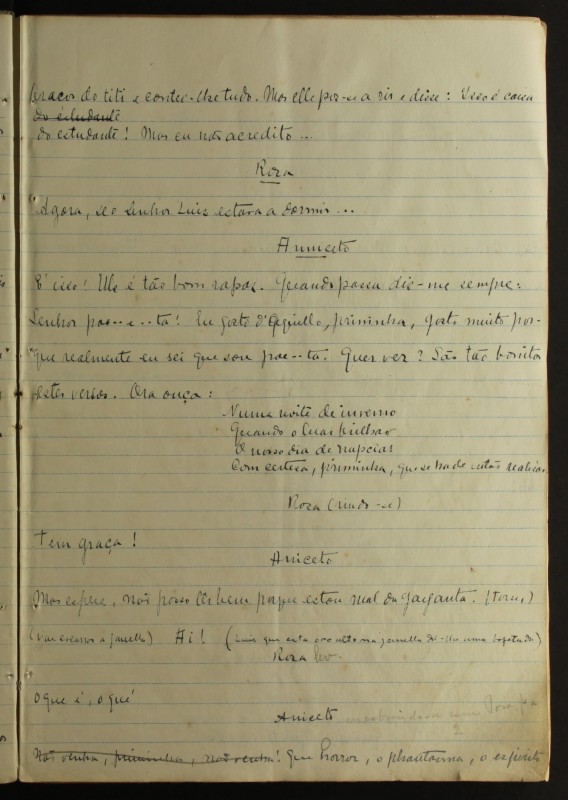 braços do titi e contei-lhe tudo. Mas elle poz-se a rir e disse: Isso é cousa
do estudante
do estudante! Mas eu não acredito...
Roza
Agora, se o Senhor Luis estava a dormir...
Aniceto
E' isso! Elle é tão bom rapaz. Quando passa diz-me sempre:
Senhor poe--e--ta! Eu gosto d'aquillo, priminha, gosto muito por-
que realmente eu sei que sou poe--ta. Quer vez? São tão bonitos
estes versos. Ora ouça:
Numa noite de inverno
Quando o luar brilhar
O nosso dia de nupcias
Com certeza, priminha, que se ha de realisar.
Roza (rindo-se)
Tem graça!
Aniceto
Mas espere, não posso ler bem porque estou mal da garganta. (Torce,)
(vae escarrar á janella) Ai! (Luis que está occulto na janella dá-lhe uma bofetada)
Roza
O que é, o que é
Aniceto
Não venha, priminha, não venha! Que horror, o phantasma, o espirito